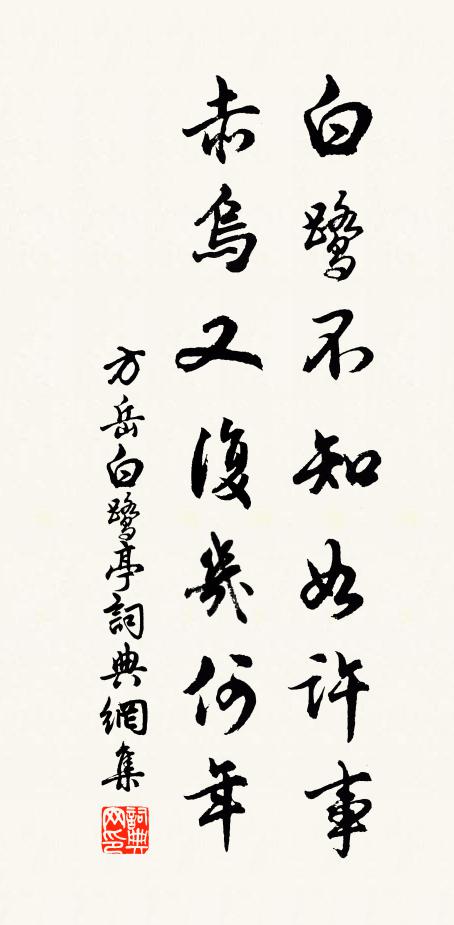 白鹭不知如許事
赤烏又復幾何年
方岳白鹭亭詞典網集
詞典网印